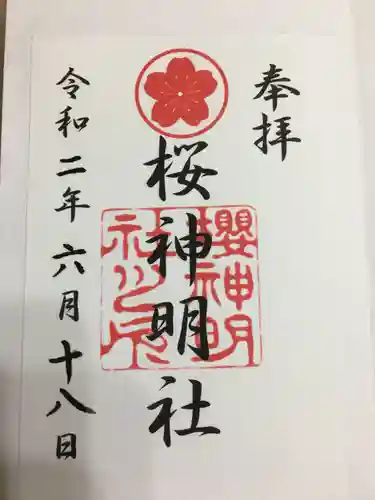 奉拝
桜神明社
櫻神明
令和二年六月十八日